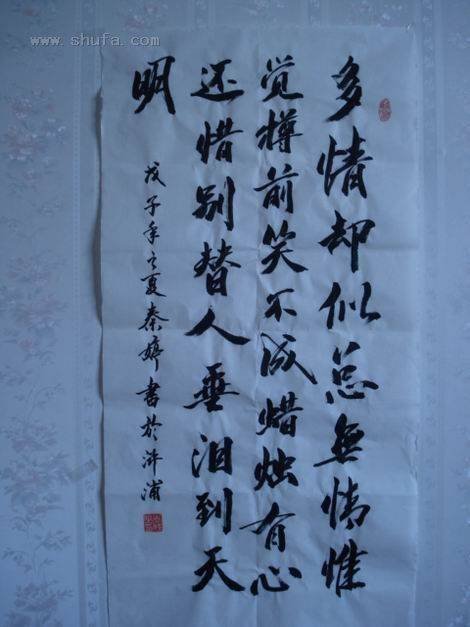 多情却似总无情惟
觉樽前笑不成蜡烛有心
还惜别替人垂泪到天
明
戊子年之夏秦婷书於浒浦
www.shufa.com